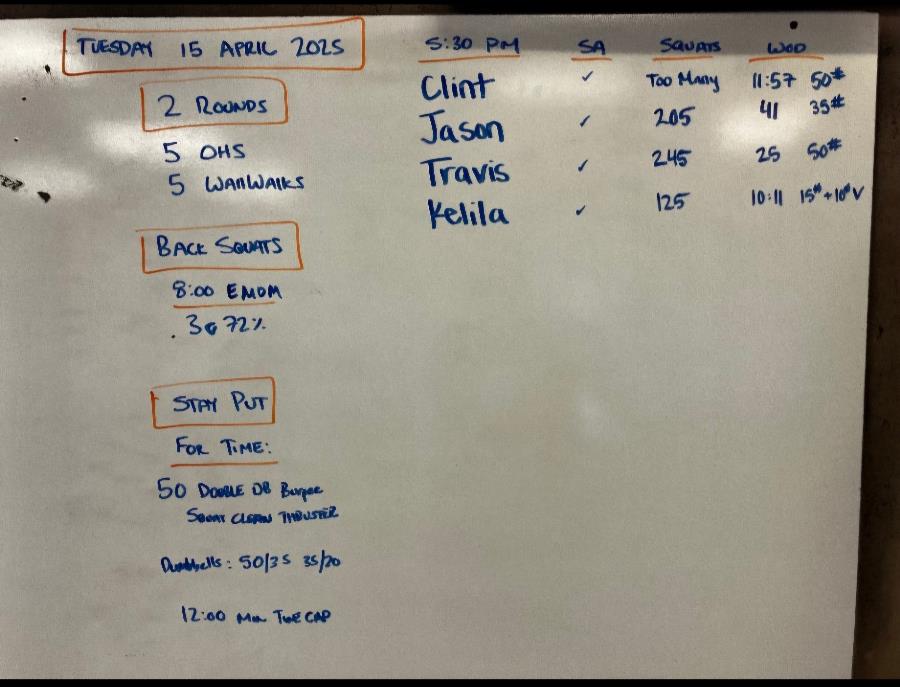 TUESDAY 15 APRIL 2025
2 ROUNDS
5 OHS
5 WALLWALKS
BACK SQUATS
8:00 EMOM
3@72%
STAY PUT
FOR TIME:
50 DOUBLE DB Burpee
SQUAT CLEAN THRUSTER
Dumbbells: 50/35 35/20
12:00 Min TIME CAP
5:30 PM SA SQUATS WOD
Clint ✓ Too Many 11:57 50#
Jason ✓ 205 41 35#
Travis ✓ 245 25 50#
Kelila ✓ 125 10:11 15#+10#V